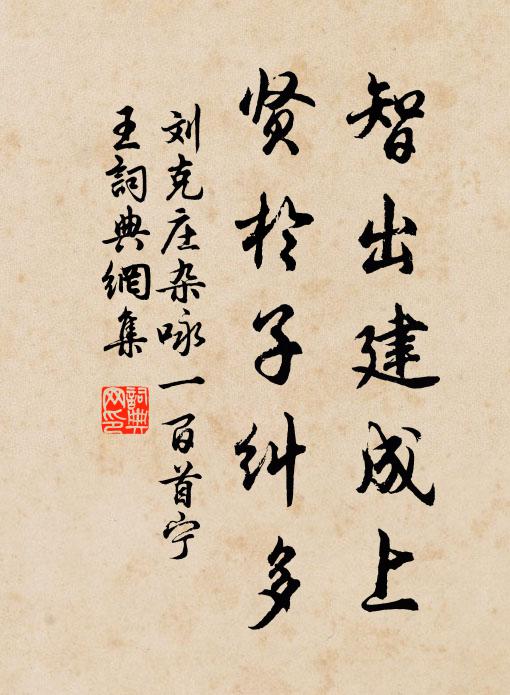 智出建成上
贤於子纠多
刘克庄杂咏一百首宁
王詞典網集
詞典网印